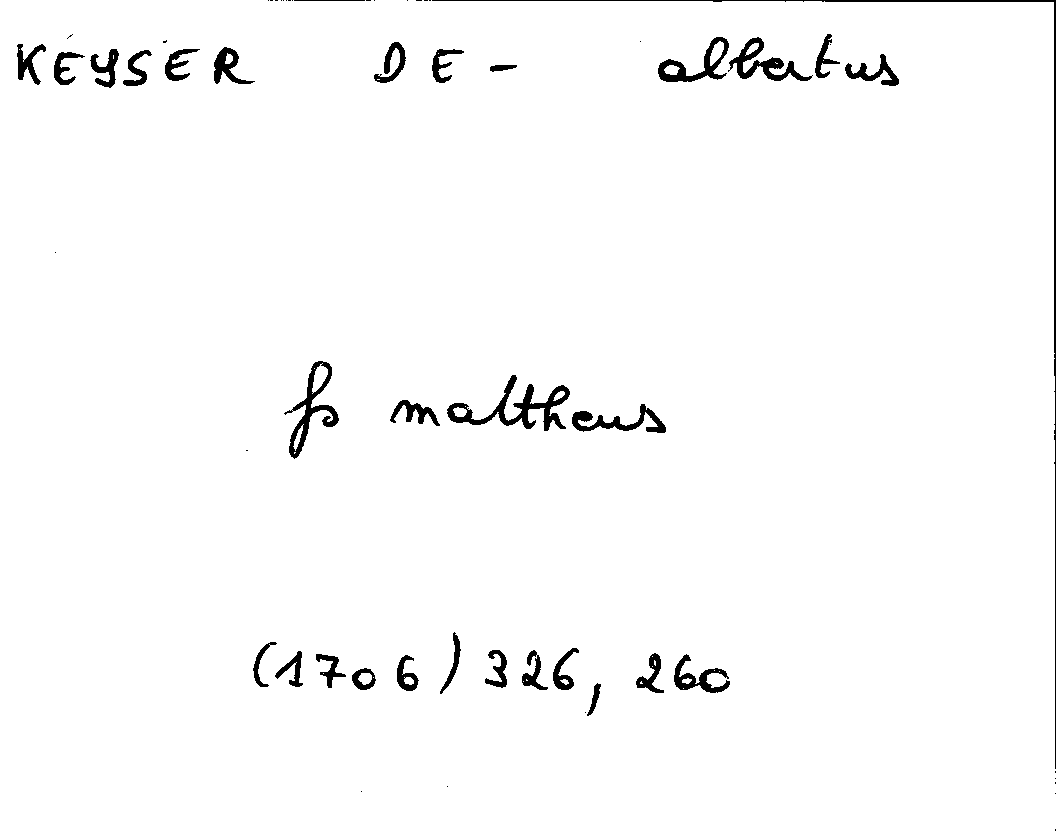 KEYSER DE - albertus
fs mattheus
(1706) 326, 260